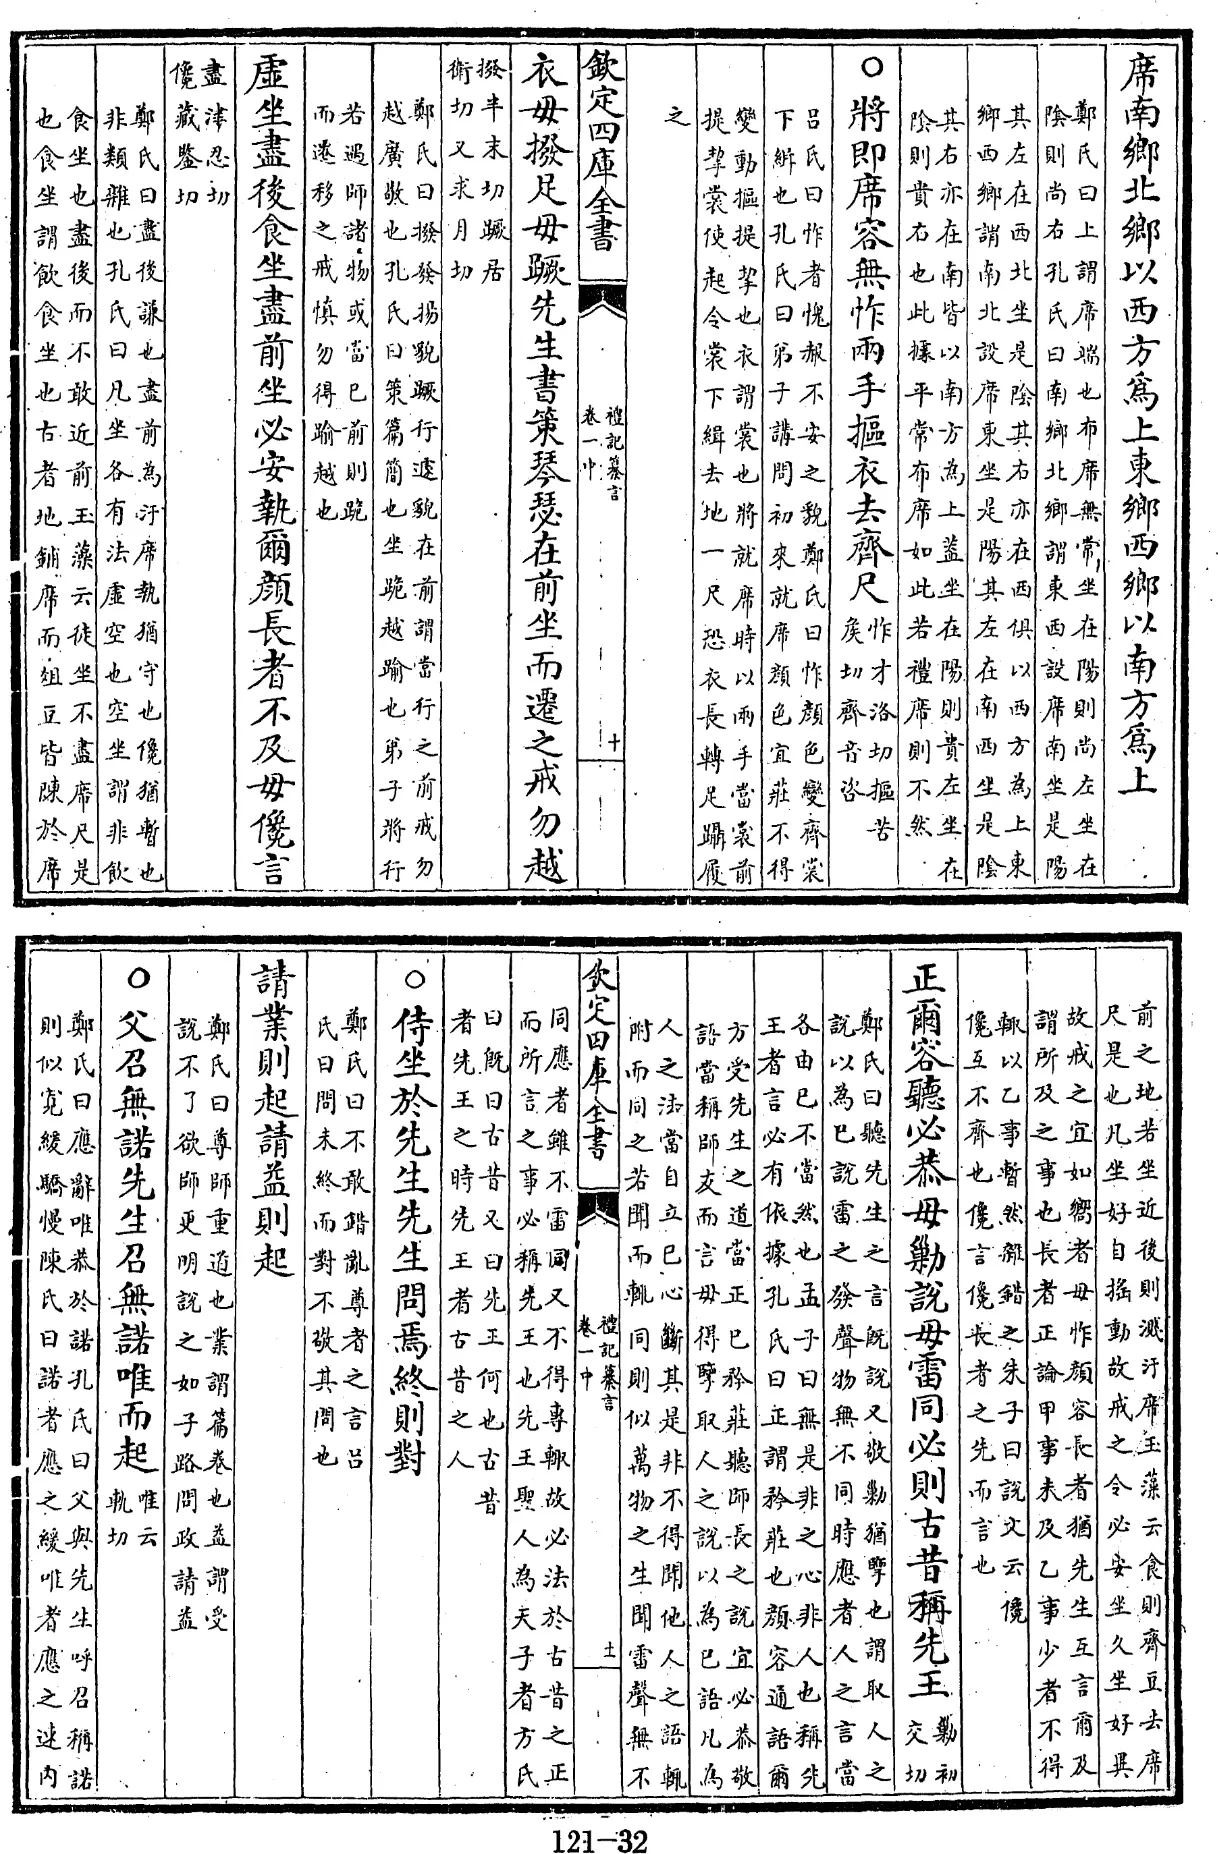 席南鄉北鄉以西方爲上東鄉西鄉以南方爲上
鄭氏曰上謂席端也布席無常坐在陽則尚左坐在
陰則尚右孔氏曰南鄉北鄉謂東西設席南坐是陽
其左在西北坐是陰其右亦在西俱以西方為上東
鄉西鄉謂南北設席東坐是陽其左在南西坐是陰
其右亦在南皆以南方為上蓋坐在陽則貴左坐在
陰則貴右也此據平常布席如此若禮席則不然
○將即席容無怍兩手摳衣去齊尺
怍才洛切摳苦
矦切齊音咨
呂氏曰怍者愧赧不安之貌鄭氏曰怍顏色變齊裳
下緝也孔氏曰弟子講問初來就席顏色宜莊不得
變動摳提挈也衣謂裳也將就席時以兩手當裳前
提挈裳使起令裳下緝去地一尺恐衣長轉足躡履
之
欽定四庫全書
禮記纂言
卷一中
十
衣毋撥足毋蹶先生書策琴瑟在前坐而遷之戒勿越
撥半末切蹶居
衛切又求月切
鄭氏曰撥發揚貌蹶行遽貌在前謂當行之前戒勿
越廣敬也孔氏曰策篇簡也坐跪越踰也弟子將行
若遇師諸物或當已前則跪
而遷移之戒慎勿得踰越也
虛坐盡後食坐盡前坐必安執爾顏長者不及毋儳言
盡津忍切
儳蒼鑒切
鄭氏曰盡後謙也盡前為汙席執猶守也儳猶暫也
非類雜也孔氏曰凡坐各有法虛空也空坐謂非飲
食坐也盡後而不敢近前玉藻云徒坐不盡席尺是
也食坐謂飲食坐也古者地鋪席而俎豆皆陳於席
前之地若坐近後則濺汙席玉藻云食則齊豆去席
尺是也凡坐好自搖動故戒之令必安坐久坐好異
故戒之宜如嚮者毋怍顏容長者猶先生互言爾及
謂所及之事也長者正論甲事未及乙事少者不得
輒以乙事暫然雜錯之朱子曰說文云儳
儳互不齊也儳言儳長者之先而言也
正爾容聽必恭毋勦說毋雷同必則古昔稱先王
勦初
交切
鄭氏曰聽先生之言既說又敬勦猶擥也謂取人之
說以為已說雷之發聲物無不同時應者人之言當
各由已不當然也孟子曰無是非之心非人也稱先
王者言必有依據孔氏曰正謂矜莊也顏容通語爾
方受先生之道當正已矜莊聽師長之說宜必恭敬
語當稱師友而言毋得擥取人之說以為已語凡為
人之法當自立已心斷其是非不得聞他人之語輒
附而同之若聞而輒同則似萬物之生聞雷聲無不
欽定四庫全書
禮記纂言
卷一中
土
同應者雖不雷同又不得專輒故必法於古昔之正
而所言之事必稱先王也先王聖人為天子者方氏
曰既曰古昔又曰先王何也古昔
者先王之時先王者古昔之人
○侍坐於先生先生問焉終則對
鄭氏曰不敢錯亂尊者之言呂
氏曰問未終而對不敬其問也
請業則起請益則起
鄭氏曰尊師重道也業謂篇卷也益謂受
說不了欲師更明說之如子路問政請益
○父召無諾先生召無諾唯而起
唯云
軌切
鄭氏曰應辭唯恭於諾孔氏曰父與先生呼召稱諾
則似寬緩驕慢陳氏曰諾者應之緩唯者應之速內
121-32